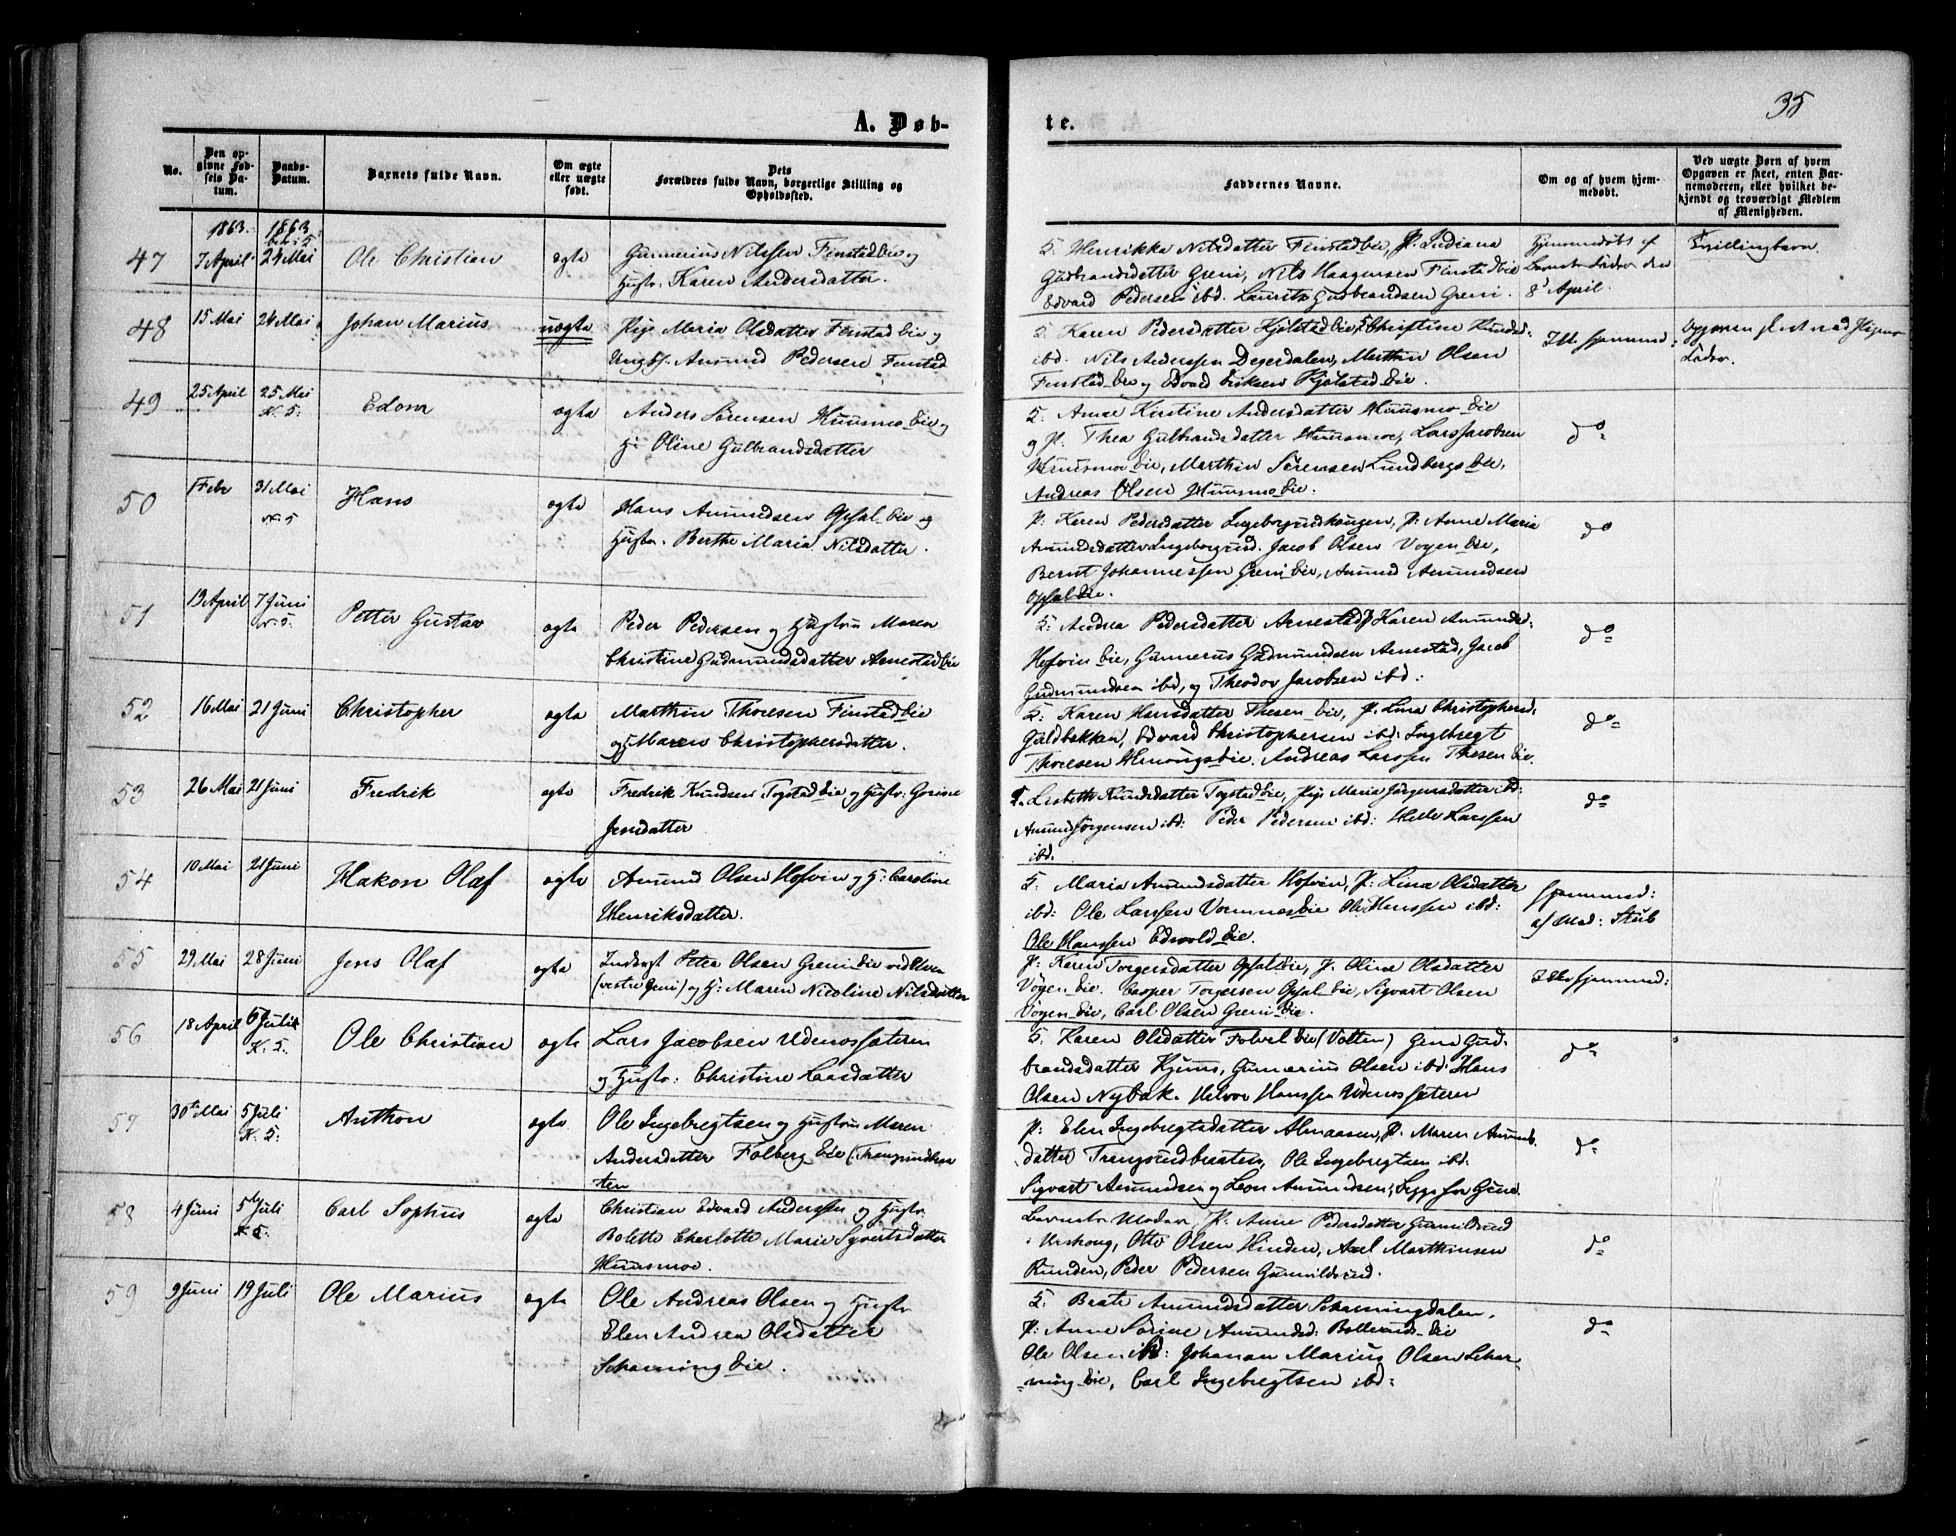 35
A. Døb-
te.
No.
Den op-
givne Fød-
sels Da-
tum.
Daabs-
Datum.
Barnets fulde Navn.
Om ægte
eller uægte
født.
Dets
Forældres fulde Navn, borgerlige Stilling og
Opholdssted.
Faddernes Navne.
Om og af hvem hjem-
medøbt.
Ved uægte Børn af hvem
Opgaven er skeet, enten Bar-
nemoderen, eller hvilket be-
kjendt og troværdigt Medlem
af Menigheden.
1863. 1863
47 7 April 24 Mai Ole Christian ægte Gunnerius Nilssen Finstadeie og
Hustr: Karen Andersdatter.
Henrikka Nilsdatter Finstadeie, P. Indiana
Gudbrandsdatter Greni, Nils Haagensen Finstadeie
Edvard Pedersen ibd. Laurits Gudbrandsen Greni.
Barnets Fader den
8 April.
Tvillingbarn.
48 15 Mai 24 Mai Johan Marius uægte Pige Maria Olsdatter Finstad Eie og
Ungk. Amund Pedersen Finstad
Karen Pedersdatter Kjølstad eie, Christine Knudsd:
ibd. Nils Anderssen Degerdalen, Marthin Olsen
Finstad Eie og Edvard Eriksen Kjølstad Eie.
Ikke hjemmed:
49 25 April 25 Mai K. 5. Edom ægte Anders Sörensen Huusmo Eie og
H: Oline Gulbrandsdatter
5. Anne Kirstine Andersdatter Huusmo Eie
og P. Thea Gulbrandsdatter Huusmoe, Lars Jacobsen
Huusmoe Eie, Marthin Sörensen Lundbergs Eie,
Andreas Olsen Huusmo Eie.
do
50 31 Mai Hans ægte Hans Amundsen Opsal Eie og
Hustr. Berthe Maria Nilsdatter.
P: Karen Pedersdatter Ingeborgrudhaugen, P: Anne Maria
Amundsdatter Ingeborgrud. Jacob Olsen Vogen Eie,
Bernt Johannessen Greni Eie, Amund Amundsen
Opsal Eie.
do
51 13 April 7 Juni Petter Gustav ægte Peder Pedersen og Hustru Maren
Christine Gudmundsdatter Arnestad Eie
5: Andrea Pedersdatter Arnestad, P Karen Amunds:
Hofvin Eie, Gunnerus Gudmundsen Arnestad, Jacob
Gudmundsen ibd, og Theodor Jacobsen ibd:
do
52 16 Mai 21 Juni Christopher ægte Marthin Thoresen Finstad Eie
og Maren Christophersdatter.
5: Karen Hansdatter Thesen Eie, P. Lina Christophersd:
Guldbakken, Edvard Christophersen ibd: Ingebregt
Thoresen Eie. Andreas Larssen Thesen Eie.
do
53 26 Mai 21 Juni Fredrik ægte Fredrik Knudsen Togstad Eie og Hustr: Gorine
Jensdatter
Lisbeth Knudsdatter Togstad Eie, Pige Maria Jörgensdatter ibd:
Amund Jörgensen ibd: Peder Pedersen ibd: Helle Larssen
ibd.
do
54 10 Mai 21 Juni Hakon Olaf ægte Amund Olsen Hofvin og H: Caroline
Henriksdatter.
5: Maria Amundsdatter Hofvin, P: Lina Olsdatter
ibd: Ole Larssen Vormnes Eie Ole Hanssen ibd:
Ole Hanssen Edvold Eie.
hjemmed:
af Mad: Stub
55 29 Mai 28 Juni Jens Olaf ægte Inderst Peter Olsen Greni Eie ved Elven
(vestre Greni) og H: Maren Nicoline Nilsdatter
P: Karen Torgersdatter Opsal Eie, P. Oline Olsdatter
Vogen Eie. Casper Torgersen Opsal Eie, Sigvart Olsen
Vogen Eie, Carl Olsen Greni Eie.
Ikke hjemmed:
56 18 April Juli K. 5. Ole Christian ægte Lars Jacobsen Udenossæteren
og Hustr: Christine Larsdatter
5. Karen Olsdatter Folvel Eie (Volten) Gina Gud-
brandsdatter Kjuus, Gunnerius Olsen ibd: Hans
Olsen Nybak. Helvor Hanssen Udenossæteren
do
57 30te Mai 5 Juli K. 5: Anthon ægte Ole Ingebregtsen og Hustru Maren
Andersdatter Folberg Eie (Trangrudbraa
ten
P: Elen Ingebregtsdatter Almaasen, P. Maren Amunds
datter Trangrudbraaten, Ole Ingebregtsen ibd:
Sigvart Amundsen og Leon Amundsen,
do
58 4 Juni 5 Juli K. 5. Carl Sophus ægte Christian Edvard Anderssen og Hustr.
Bolette Charlotte Marie Syvertsdatter
Huusmoe.
Barnets Moder, P. Anne Pedersdatter Gunnildsrud
i Urskoug, Otto Olsen Hinden, Axel Marthinsen
Runden, Peder Pedersen Gunnildsrud.
do
59 9 Juni 19 Juli Ole Marius ægte Ole Andreas Olsen og Hustr
Elen Andrea Olsdatter
Scharning Eie.
5. Beate Amundsdatter Scharningdalen,
P: Anne Sörine Amundsd: Bollerud Eie
Ole Olsen ibd: Johanan Marius Olsen Schar-
ning Eie, Carl Ingebregtsen ibd:
do